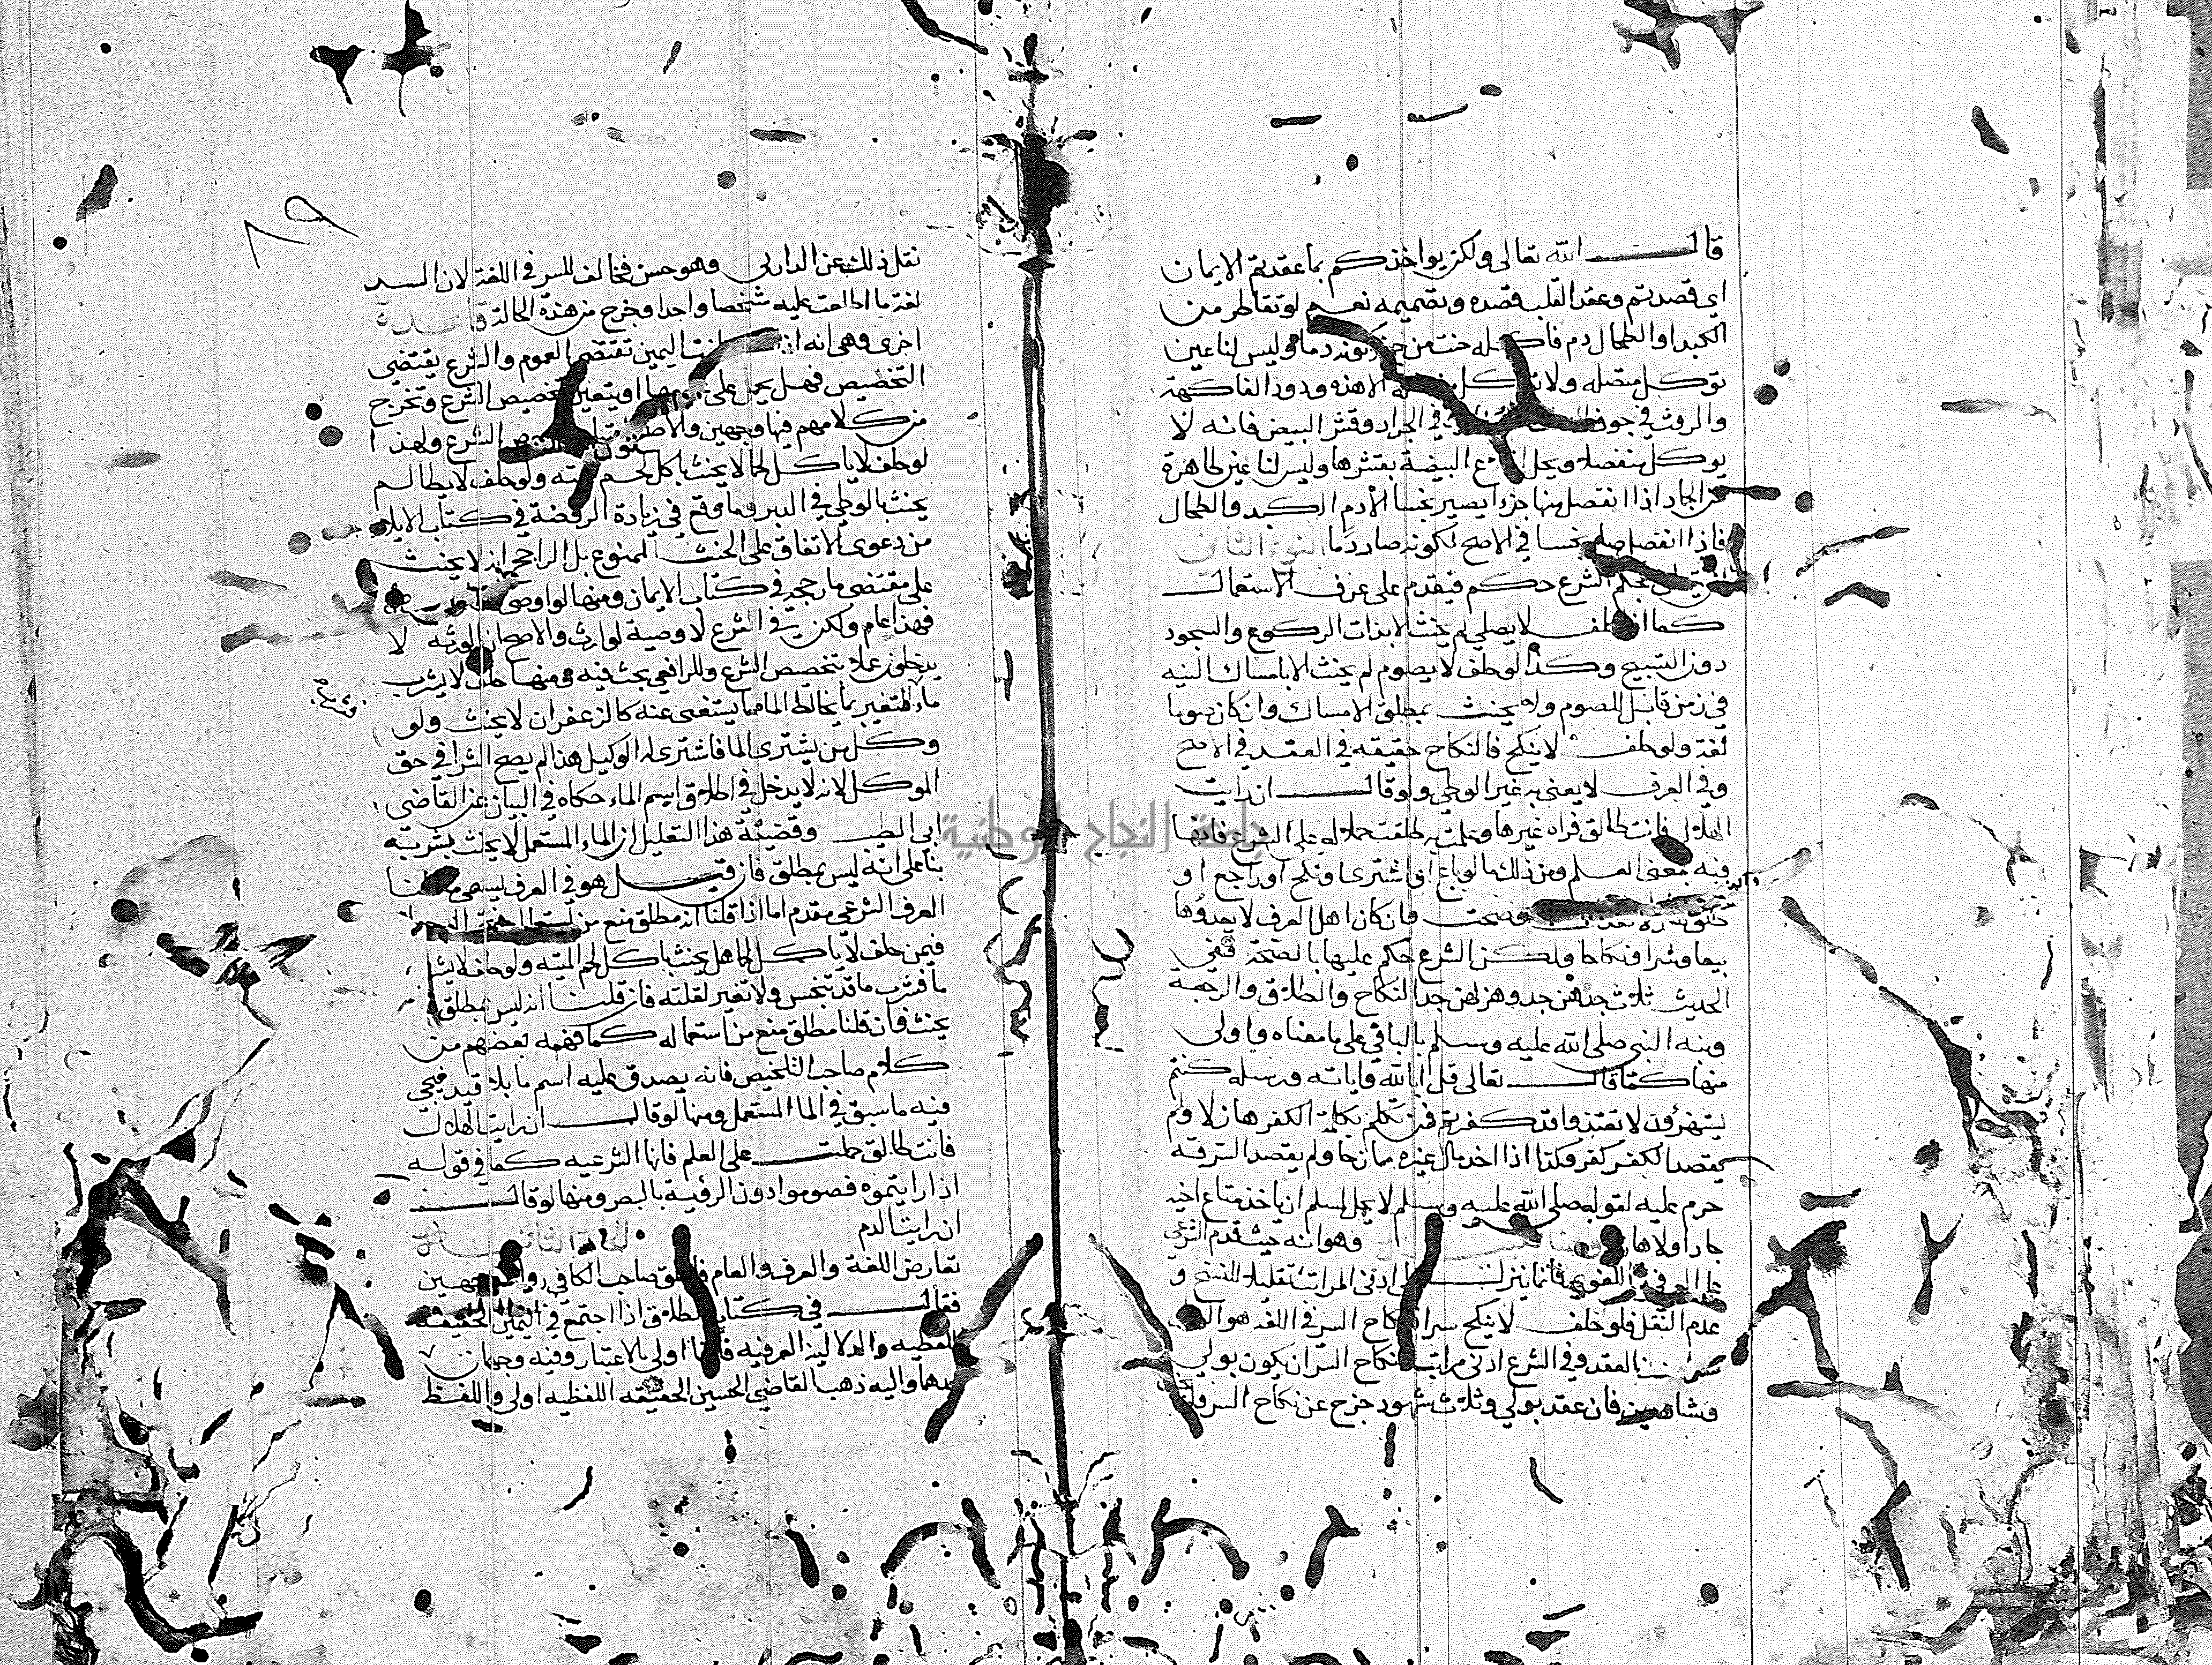 قال الله تعالى ولكن يواخذكم بما عقدتم الايمان
اي قصدتم وعقد القلب قصده وتصميمه نعم لو تقاطر من
الكبد او الطحال دم فاكله حنث من حيث كونه دما وليس لنا عين
توكل متصله ولا توكل منفصله الا هذه ودود الفاكهة
والروث في جوف في الجراد وقشر البيض فانه لا
يوكل منفصلا ويحل ابتلاع البيضة بقشرها وليس لنا عين طاهرة
من الجماد اذا انفصل منها جزء يصير نجسا الا دم الكبد والطحال
فاذا انفصل صار نجسا في الاصح لكونه صار دما النوع الثاني
ان يتعلق بحكم الشرع حكم فيقدم على عرف الاستعمال
كما اذا حلف لا يصلي لم يحنث الا بذات الركوع والسجود
دون التسبيح وكذا لو حلف لا يصوم لم يحنث الا بامساك النيه
في زمن قابل للصوم ولا يحنث بمطلق الامساك وان كان صوما
لغة ولو حلف لا ينكح فالنكاح حقيقه في العقد في الاصح
وفي العرف لا يعنى به غير الوطي ولو قال ان رايت
الهلال فانت طالق فراه غيرها وعلمت به طلقت حملا له على الشرع فانها
فيه بمعنى العلم ومن ذلك ما لو باع او اشترى او نكح او راجع او
طلق وصحت وان كان اهل العرف لا يعدوها
بيعا وشرا ونكاحا ولكن الشرع حكم عليها بالصحة ففي
الحديث ثلاث جدهن جد وهزلهن جد النكاح والطلاق والرجعة
ونبه النبي صلى الله عليه وسلم بالباقي على ما معناه واولى
منها كما قال تعالى قل ابالله واياته ورسله كنتم
يستهزؤن لا تعتذروا قد كفرتم فمن تكلم بكلمة الكفر هازلا ولم
يقصد الكفر كفر وكذا اذا اخذ مال غيره مازحا ولم يقصد السرقه
حرم عليه لقوله صلى الله عليه وسلم لا يحل لمسلم ان ياخذ متاع اخيه
جادا ولا هازلا وهو انه حيث قدم الشرعي
على العرفي واللغوي فانما ينزل على ادنى المراتب تقليلا للنسخ و
عدم النقل فلو حلف لا ينكح سرا فنكاح السر في اللغه هو
العقد وفي الشرع ادنى مراتب نكاح السر ان يكون بولي
وشاهدين فان عقد بولي وثلاث شهود خرج عن نكاح السر
نقل ذلك عن الدارمي وهو حسن مخالف للسر في اللغة لان السر
لغة ما اطلعت عليه شخصا واحدا وخرج من هذه الحالة قاعدة
اخرى وهي انه اذا كانت اليمين تقتضي العموم والشرع يقتضي
التخصيص فهل يحمل على عمومها او يتعين تخصيص الشرع وتخرج
من كلامهم فيها وجهين والاصح الشرع ولهذا
لو حلف لا ياكل لحما لا يحنث باكل لحم الميته ولو حلف لا يطا لم
يحنث بالوطي في الدبر وما وقع في زيادة الروضة في كتاب الايلاء
من دعوى الاتفاق على الحنث ممنوع بل الراجح انه لا يحنث
على مقتضى ما رجحه في كتاب الايمان ومنها لو اوصى
فهذا عام ولكن في الشرع لا وصية لوارث والاصح ان الورثه لا
يدخلون عملا بتخصيص الشرع وللرافعي بحث فيه ومنها حلف لا يشرب
ماء فالمتغير بما يخالط الماء مما يستغنى عنه كالزعفران لا يحنث ولو
وكل من يشتري الما فاشترى له الوكيل هذا لم يصح الشرا في حق
الموكل لانه لا يدخل في اطلاق اسم الماء حكاه في البيان عن القاضي
ابي الطيب وقضية هذا التعليل ان الماء المستعمل لا يحنث بشربه
بنا على انه ليس بمطلق فان قيل هو في العرف يسمى مطلقا
العرف الشرعي مقدم اما اذا قلنا انه مطلق منع من استعماله
فيمن حلف لا ياكل لحما هل يحنث باكل لحم الميته ولو حلف لا يشرب
ما فشرب ما قد تنجس ولا تغير لقلته فان قلنا انه ليس بمطلق لم
يحنث وان قلنا مطلق منع من استعماله كما فهمه بعضهم من
كلام صاحب التلخيص فانه يصدق عليه اسم ما بلا قيد فيجي
فيه ما سبق في الما المستعمل ومنها لو قال ان رايت الهلال
فانت طالق حملت على العلم فانها الشرعيه كما في قوله
اذا رايتموه فصوموا دون الرؤية بالبصر ومنها لو قال
ان رايت الدم الثانيه
تعارض اللغة والعرف العام فاطلق صاحب الكافي وجهين
فقال في كتاب الطلاق اذا اجتمع في اليمين الحقيقه
اللفظيه والدلالة العرفيه فايها اولى بالاعتبار وفيه وجهان
احدها واليه ذهب القاضي الحسين الحقيقه اللفظيه اولى واللفظ